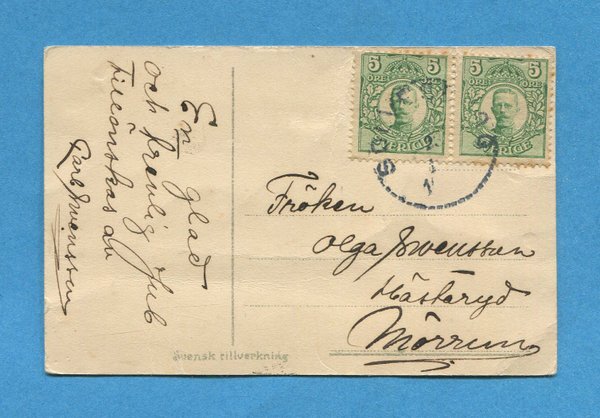 En glad
och frenlig Jub
tillönskas av
Carl Svensson
5 5
ÖRE ÖRE
SVERIGE
Fröken
Olga Svenssson
Hästaryd
Mörrum
Svensk tillverkning